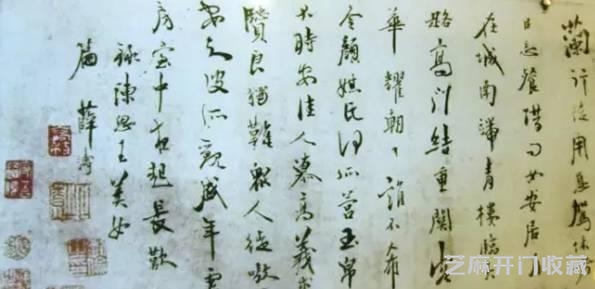 蘭行徒用息駕休者
以忘餐借问女安居
在城南端青樓臨大
路高门結重関容
華耀朝日誰不希
令顔媒氏何所营玉帛
不時安佳人慕高義求
賢良獨難衆人徒嗷
安知彼所觀盛年處
房室中夜起長歎
錄陳思王美女
篇 薛濤
芝麻开门收藏